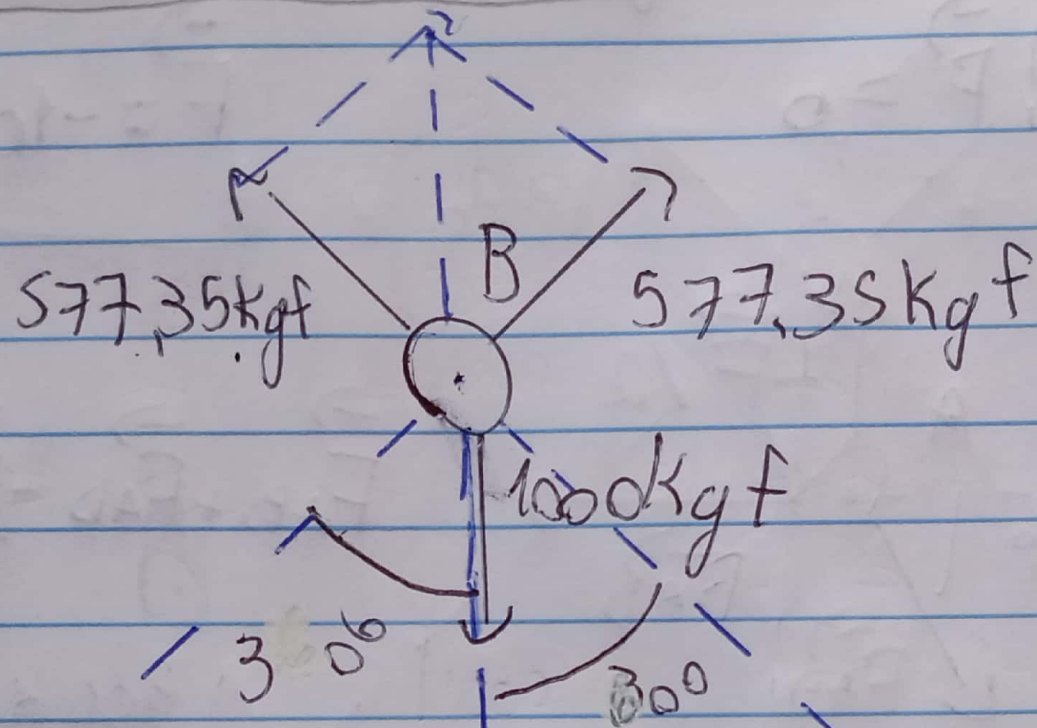 B
577,35kgf 577,35Kgf
1000Kgf
30° 30°